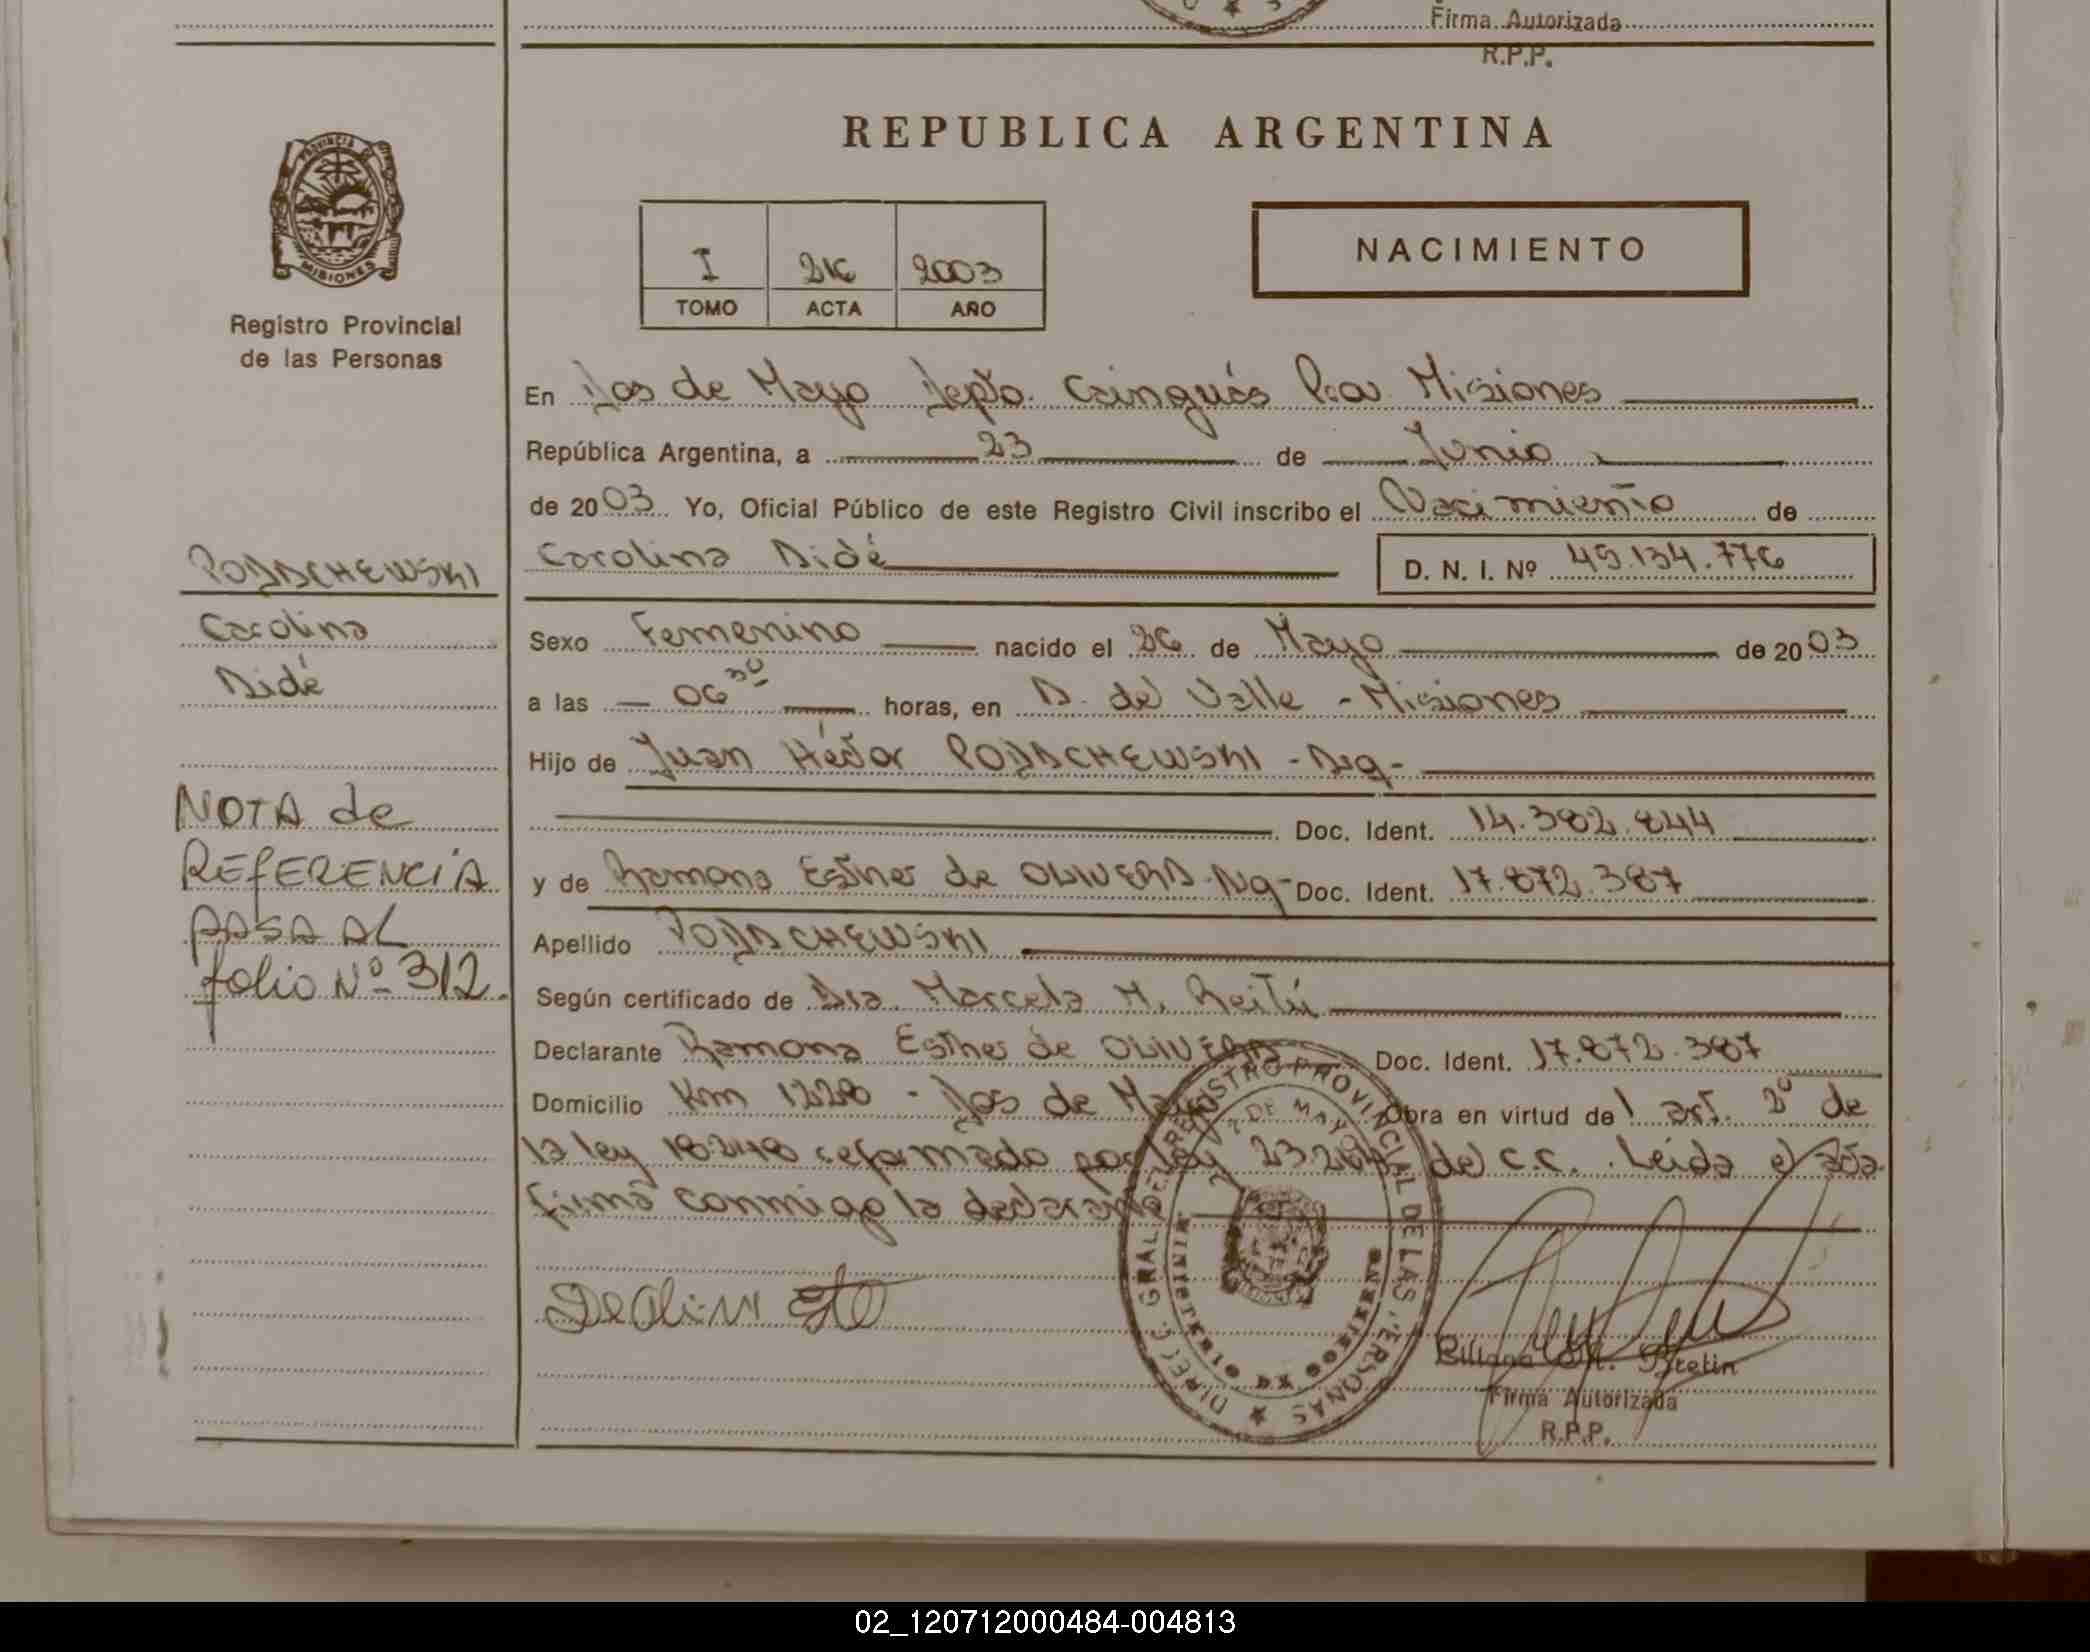 Firma Autorizada
R.P.P.
REPUBLICA ARGENTINA
PROVINCIA DE
MISIONES
Registro Provincial
de las Personas
I 216 2003
TOMO ACTA AÑO
NACIMIENTO
En Dos de Mayo Depto. Cainguás Pcia. Misiones
República Argentina, a 23 de Junio
de 2003 Yo, Oficial Público de este Registro Civil inscribo el Nacimiento de
Carolina Aidé D. N. I. Nº 45.134.776
PODACHEWSKI
Carolina
Aidé
Sexo Femenino nacido el 26 de Mayo de 2003
a las 06 30 horas, en A. del Valle - Misiones
Hijo de Juan Héctor PODACHEWSKI - Arg -
Doc. Ident. 14.382.844
y de Ramona Esther de OLIVERA - Arg - Doc. Ident. 17.872.387
Apellido PODACHEWSKI
Según certificado de Dra. Marcela M. Reitú
Declarante Ramona Esther de OLIVERA Doc. Ident. 17.872.387
Domicilio Km 1228 - Dos de Mayo Obra en virtud del art. 2º de
la ley 18248 reformado por ley 23.264 del C.C. Leída el acta
firma conmigo la declarante
NOTA de
REFERENCIA
PASA AL
folio Nº 312.
DIREC. GRAL. REGISTRO PROVINCIAL DE LAS PERSONAS
2 DE MAYO
Firma Autorizada
R.P.P.
02_120712000484-004813